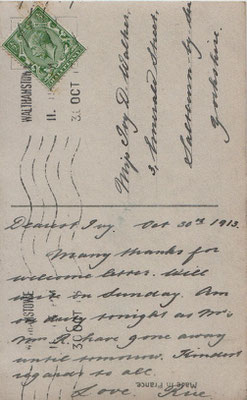 WALTHAMSTOW
30 OCT
Miss Ivy D. Walker,
3, Emerald Street,
Saltburn by Sea
Yorkshire.
Dearest Ivy. Oct 30th 1913.
Many thanks for
welcome letter. Will
write on Sunday. Am
on duty tonight as Mr
Mrs R. have gone away
until tomorrow. Kindest
regards to all.
Love.
Made in France.